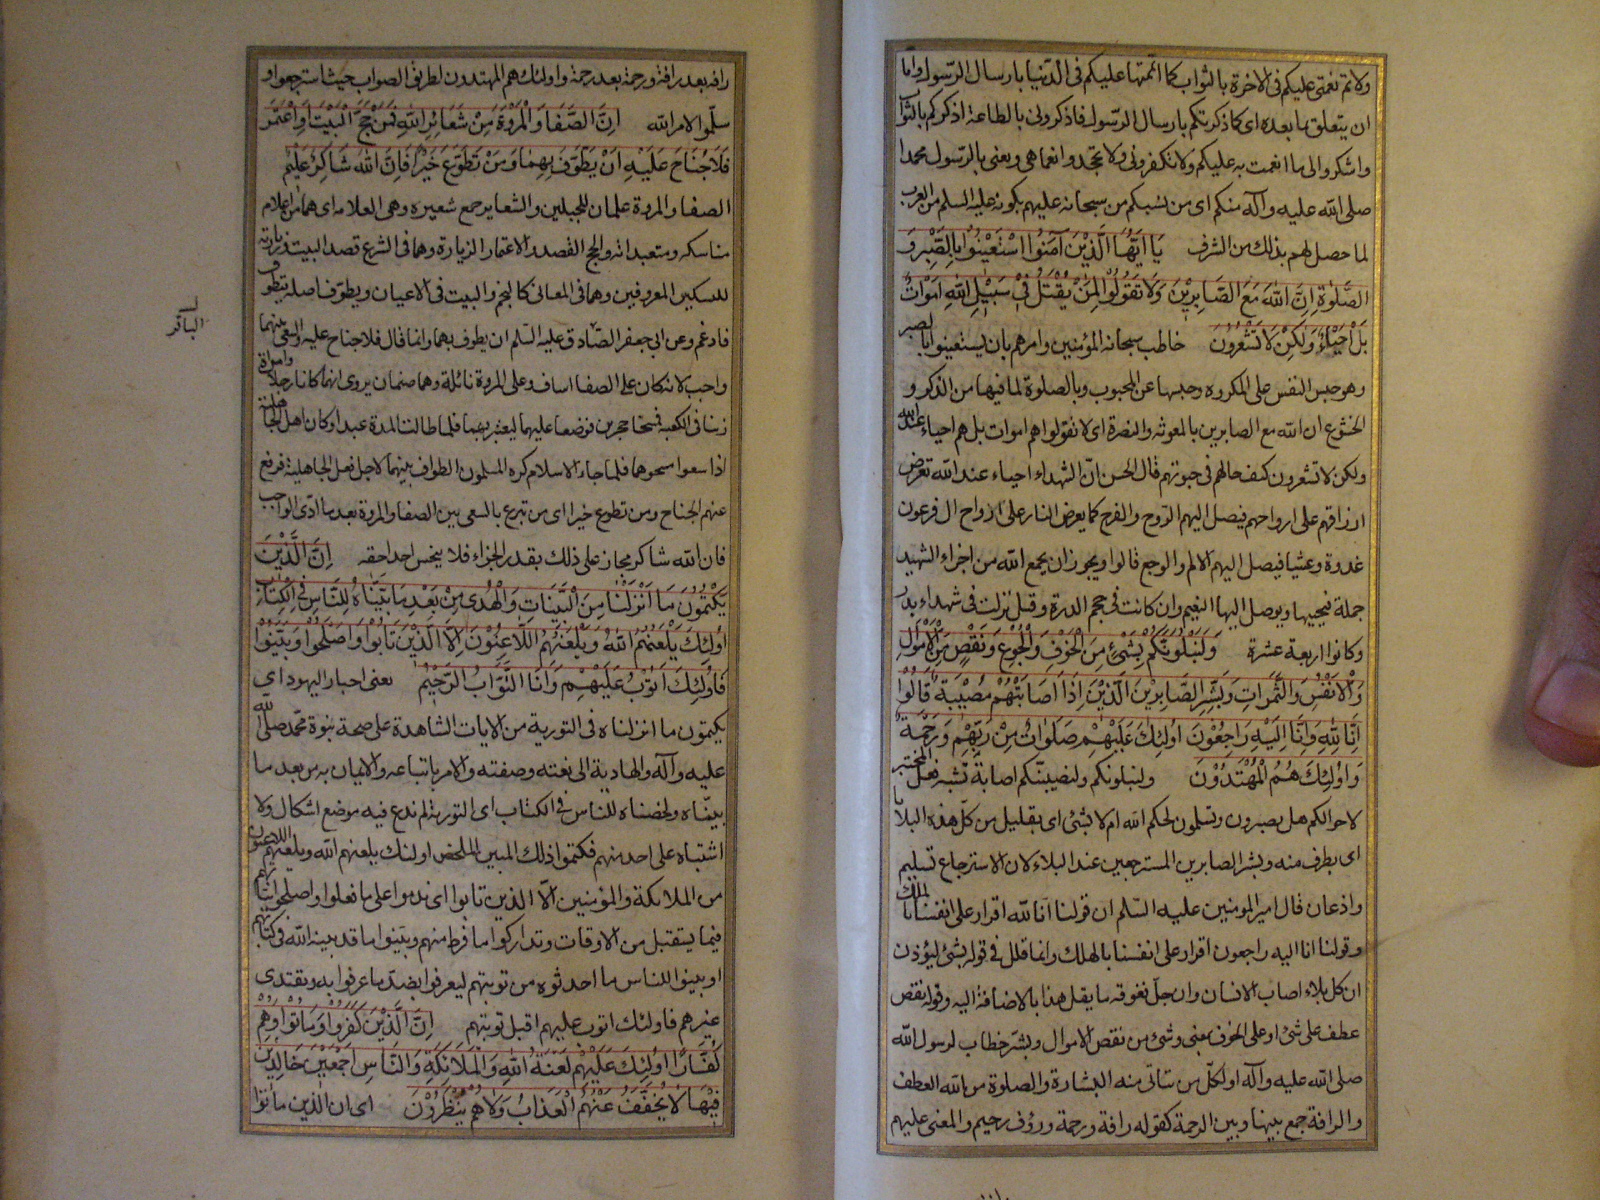 ولاتم نعمتی علیکم فی الاخرة بالثواب کما اتممتها علیکم فی الدنیا بارسال الرسول واما
ان یتعلق بما بعده ای کما ذکرتکم بارسال الرسول فاذکرونی بالطاعة اذکرکم بالثواب
واشکروا لی ما انعمت به علیکم ولا تکفرونی ولا تجحدوا نعماهی ویعنی بالرسول محمدا
صلی الله علیه وآله منکم ای من نسبکم من سبحانه علیهم بکونه علیه السلم من العرب
لما حصل لهم بذلک من الشرف یَا اَیُّهَا الَّذِیْنَ آمَنُوا اسْتَعِیْنُوا بِالصَّبْرِ وَ
الصَّلٰوةِ اِنَّ اللّٰهَ مَعَ الصَّابِرِیْنَ وَلَا تَقُوْلُوْا لِمَنْ یُقْتَلُ فِیْ سَبِیْلِ اللّٰهِ اَمْوَاتٌ
بَلْ اَحْیَآءٌ وَلٰکِنْ لَا تَشْعُرُوْنَ خاطب سبحانه المؤمنین وامرهم بان یستعینوا بالصبر
وهو حبس النفس علی المکروه وحبسها عن المحبوب وبالصلوة لما فیها من الذکر و
الخشوع ان الله مع الصابرین بالمعونة والنصرة ای لا تقولوا هم اموات بل هم احیاء عند الله
ولکن لا تشعرون کیف حالهم فی حیوتهم قال الحسن انّ الشهداء احیاء عند الله تعرض
ارزاقهم علی ارواحهم فیصل الیهم الروح والفرح کما یعرض النار علی ارواح ال فرعون
غدوة وعشیا فیصل الیهم الالم والوجع قالوا ویجوز ان یجمع الله من اجزاء الشهید
جملة فیحییها ویوصل الیها النعیم وان کانت فی حجم الذرة وقیل نزلت فی شهداء بدر
وکانوا اربعة عشرة وَلَنَبْلُوَنَّکُمْ بِشَیْءٍ مِنَ الْخَوْفِ وَالْجُوْعِ وَنَقْصٍ مِنَ الْاَمْوَالِ
وَالْاَنْفُسِ وَالثَّمَرَاتِ وَبَشِّرِ الصَّابِرِیْنَ الَّذِیْنَ اِذَا اَصَابَتْهُمْ مُصِیْبَةٌ قَالُوْا
اِنَّا لِلّٰهِ وَاِنَّا اِلَیْهِ رَاجِعُوْنَ اُولٰئِکَ عَلَیْهِمْ صَلَوَاتٌ مِنْ رَبِّهِمْ وَرَحْمَةٌ
وَاُولٰئِکَ هُمُ الْمُهْتَدُوْنَ ولنبلونکم ولنصیبنکم اصابة تشبه فعل المختبر
لاحوالکم هل یصبرون وتسلمون لحکم الله ام لا بشئ ای بقلیل من کلّ هذه البلایا
ای بطرف منه وبشر الصابرین المسترجعین عند البلاء لان الاسترجاع تسلیم
واذعان قال امیر المومنین علیه السّلم ان قولنا انا لله اقرار علی انفسنا بالملک
وقولنا انا الیه راجعون اقرار علی انفسنا بالهلک وانما قلل فی قوله بشئ لیؤذن
ان کل بلاء اصاب الانسان وان جلّ نفوقه ما یقل هذا بالاضافة الیه وقوله نقص
عطف علی شئ او علی الخوف بمعنی وشئ من نقص الاموال وبشّر خطاب لرسول الله
صلی الله علیه وآله او لکلّ من یتاتی منه البشارة والصلوة من الله العطف
والرافة جمع بینها وبین الرحمة کقوله رافة ورحمة ورؤف رحیم والمعنی علیهم
رافة بعد رافة ورحمة بعد رحمة واولئک هم المهتدون لطریق الصواب حیث استرجعوا و
سلّموا لامر الله اِنَّ الصَّفَا وَالْمَرْوَةَ مِنْ شَعَائِرِ اللّٰهِ فَمَنْ حَجَّ الْبَیْتَ اَوِ اعْتَمَرَ
فَلَا جُنَاحَ عَلَیْهِ اَنْ یَطَّوَّفَ بِهِمَا وَمَنْ تَطَوَّعَ خَیْرًا فَاِنَّ اللّٰهَ شَاکِرٌ عَلِیْمٌ
الصفا والمروة علمان للجبلین والشعایر جمع شعیره وهی العلامه ای هما من اعلام
مناسکه ومتعبداته والحج القصد والاعتمار الزیارة وهما فی الشرع قصد البیت وزیارته
للنسکین المعروفین وهما فی المعانی کالنجم والبیت فی الاعیان ویطوّف اصله یتطوف
فادغم وعن ابی جعفر الصّادق علیه السّلم ان یطوف بهما وانما قال فلا جناح علیه والسعی بینهما
الباقر
واجب لانه کان علی الصفا اساف وعلی المروة نائلة وهما صنمان یروی انهما کانا رجلا وامراة
زنیا فی الکعبة فمسخا حجرین فوضعا علیهما لیعتبر بهما فلما طالت المدة عبدا وکان اهل الجاهلیة
اذا سعوا مسحوهما فلما جاء الاسلام کره المسلمون الطواف بینهما لاجل فعل الجاهلیة فرفع
عنهم الجناح ومن تطوع خیرا ای من تبرع بالسعی بین الصفا والمروة بعد ما ادّی الواجب
فان الله شاکر مجاز علی ذلک بقدر الجزاء فلا یبخس احدا حقه اِنَّ الَّذِیْنَ
یَکْتُمُوْنَ مَا اَنْزَلْنَا مِنَ الْبَیِّنَاتِ وَالْهُدٰی مِنْ بَعْدِ مَا بَیَّنَّاهُ لِلنَّاسِ فِی الْکِتَابِ
اُولٰئِکَ یَلْعَنُهُمُ اللّٰهُ وَیَلْعَنُهُمُ اللَّاعِنُوْنَ اِلَّا الَّذِیْنَ تَابُوْا وَاَصْلَحُوْا وَبَیَّنُوْا
فَاُولٰئِکَ اَتُوْبُ عَلَیْهِمْ وَاَنَا التَّوَّابُ الرَّحِیْمُ یعنی احبار الیهود ای
یکتمون ما انزلناه فی التوریة من الایات الشاهدة علی صحة نبوة محمد صلی الله
علیه وآله والهادیة الی نعته وصفته والامر باتباعه والایمان به من بعد ما
بینّاه ولخصناه للناس فی الکتاب ای التوریة لم ندع فیه موضع اشکال ولا
اشتباه علی احد منهم فکتموا ذلک المبین الملخص اولئک یلعنهم الله ویلعنهم اللاعنون
من الملائکة والمؤمنین الّا الذین تابوا ای ندموا علی ما فعلوا واصلحوا نیاتهم
فیما یستقبل من الاوقات وتدارکوا ما فرط منهم وبیّنوا ما قد بینه الله فی کتابهم
او بینوا للناس ما احدثوه من توبتهم لیعرفوا بضدّ ما عرفوا به ویقتدی
غیرهم فاولئک اتوب علیهم اقبل توبتهم اِنَّ الَّذِیْنَ کَفَرُوْا وَمَاتُوْا وَهُمْ
کُفَّارٌ اُولٰئِکَ عَلَیْهِمْ لَعْنَةُ اللّٰهِ وَالْمَلَائِکَةِ وَالنَّاسِ اَجْمَعِیْنَ خَالِدِیْنَ
فِیْهَا لَا یُخَفَّفُ عَنْهُمُ الْعَذَابُ وَلَا هُمْ یُنْظَرُوْنَ ای ان الذین ماتوا